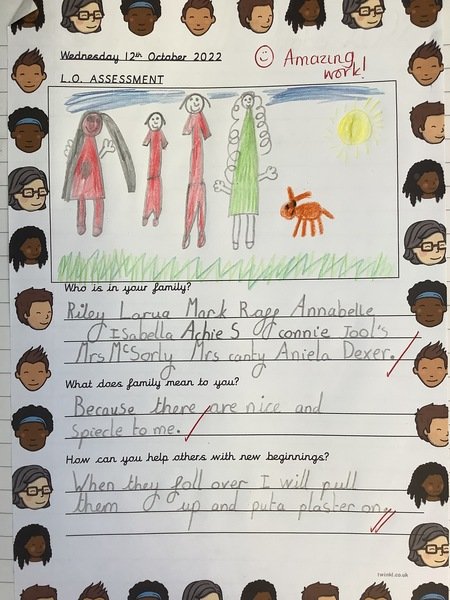 Wednesday 12th October 2022
Amazing
work!
L.O. ASSESSMENT
Who is in your family?
Riley Larua Mark Ragg Annabelle
Isabella Achie S connie Jool's
Mrs McSorly Mrs canty Aniela Dexer.
What does family mean to you?
Because there are nice and
spiecle to me.
How can you help others with new beginnings?
When they foll over I will pull
them up and put a plaster on.
twinkl.co.uk